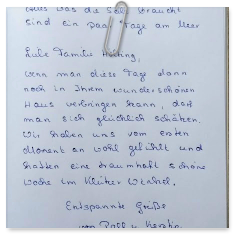 alles was die Seele braucht
sind ein paar Tage am Meer
Liebe Familie
wenn man diese Tage dann
noch in Ihrem wunderschönen
Haus verbringen kann, darf
man sich glücklich schätzen.
Wir haben uns vom ersten
Moment an wohl gefühlt und
hatten eine traumhaft schöne
Woche im Klützer Winkel.
Entspannte Grüße
von u. Kerstin